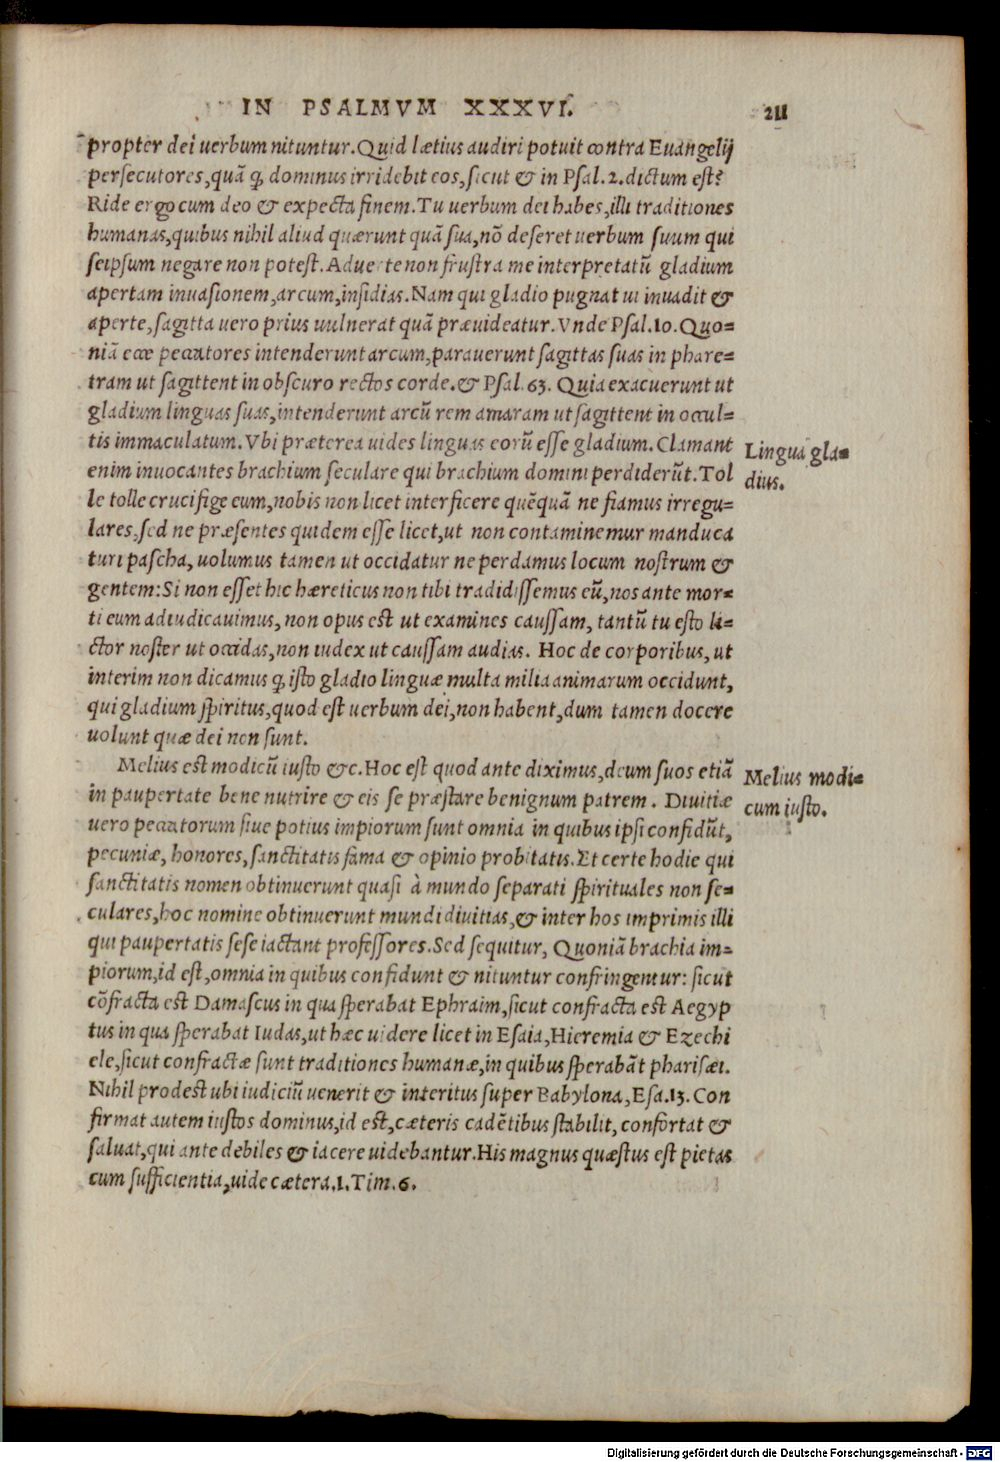 IN PSALMVM XXXVI.
211
propter dei uerbum nituntur. Quid lætius audiri potuit contra Euangelij
persecutores, quã ꝙ dominus irridebit eos, sicut & in Psal. 2. dictum est?
Ride ergo cum deo & expecta finem. Tu uerbum dei habes, illi traditiones
humanas, quibus nihil aliud quærunt quã sua, nõ deseret uerbum suum qui
seipsum negare non potest. Aduerte non frustra me interpretatũ gladium
apertam inuasionem, arcum, insidias. Nam qui gladio pugnat ut inuadit &
aperte, sagitta uero prius uulnerat quã præuideatur. Vnde Psal. 10. Quo=
niã ecce peccatores intenderunt arcum, parauerunt sagittas suas in phare=
tram ut sagittent in obscuro rectos corde. & Psal. 63. Quia exacuerunt ut
gladium linguas suas, intenderunt arcũ rem amaram ut sagittent in occul=
tis immaculatum. Vbi præterea uides linguas eorũ esse gladium. Clamant
enim inuocantes brachium seculare qui brachium domini perdiderũt. Tol
le tolle crucifige eum, nobis non licet interficere quẽquã ne fiamus irregu=
lares, sed ne præsentes quidem esse licet, ut non contaminemur manduca
turi pascha, uolumus tamen ut occidatur ne perdamus locum nostrum &
gentem: Si non esset hic hæreticus non tibi tradidissemus eũ, nos ante mor=
ti eum adiudicauimus, non opus est ut examines caussam, tantũ tu esto li=
ctor noster ut occidas, non iudex ut caussam audias. Hoc de corporibus, ut
interim non dicamus ꝙ isto gladio linguæ multa milia animarum occidunt,
qui gladium spiritus, quod est uerbum dei, non habent, dum tamen docere
uolunt quæ dei non sunt.
Lingua gla=
dius.
Melius est modicũ iusto &c. Hoc est quod ante diximus, deum suos etiã
in paupertate bene nutrire & eis se præstare benignum patrem. Diuitiæ
uero peccatorum siue potius impiorum sunt omnia in quibus ipsi confidũt,
pecuniæ, honores, sanctitatis fama & opinio probitatis. Et certe hodie qui
sanctitatis nomen obtinuerunt quasi à mundo separati spirituales non se=
culares, hoc nomine obtinuerunt mundi diuitias, & inter hos imprimis illi
qui paupertatis sese iactant professores. Sed sequitur, Quoniã brachia im=
piorum, id est, omnia in quibus confidunt & nituntur confringentur: sicut
cõfracta est Damascus in qua sperabat Ephraim, sicut confracta est Aegyp
tus in qua sperabat Iudas, ut hæc uidere licet in Esaia, Hieremia & Ezechi
ele, sicut confractæ sunt traditiones humanæ, in quibus sperabãt pharisæi.
Nihil prodest ubi iudiciũ uenerit & interitus super Babylona, Esa. 13. Con
firmat autem iustos dominus, id est, cæteris cadẽtibus stabilit, confortat &
saluat, qui ante debiles & iacere uidebantur. His magnus quæstus est pietas
cum sufficientia, uide cætera. 1. Tim. 6.
Melius modi=
cum iusto.
Digitalisierung gefördert durch die Deutsche Forschungsgemeinschaft - DFG